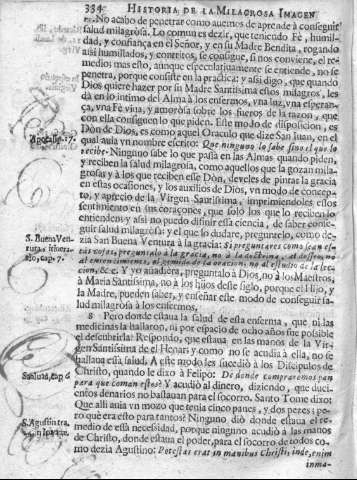 334 HISTORIA DE LA MILAGROSA IMAGEN
No acabo de penetrar como avemos de aprende à conseguir
salud milagrosa. Lo comun es dezir, que teniendo Fè, humil-
dad, y confiança en el Señor, y en su Madre Bendita, rogando
assi humillados, y contritos, se consigue, si nos conviene, el re-
medio; mas esto, aunque especulativamente se entiende, no se
penetra, porque consiste en la practica: y assi digo, que quando
Dios quiere hazer por su Madre Santissima estos milagros, les
dà en lo intimo del Alma à los enfermos, vna luz, vna esperan-
ça, vna Fè viva, y amorosa sobre los fueros de la razon, que
con ella consiguen lo que piden. Este modo de disposicion, es
Dòn de Dios, es como aquel Oraculo que dize San Iuan, en el
Apocalip. 17.
qual avia vn nombre escrito: Que ninguno lo sabe sino el que lo
recibe. Ninguno sabe lo que passa en las Almas quando piden,
y reciben la salud milagrosa, como aquellos que la gozan mila-
grosa; y à los que reciben esse Dòn, develes de pintar la gracia
en estas ocasiones, y los auxilios de Dios, vn modo de concep-
to, y aprecio de la Virgen Santissima, imprimiendoles essos
sentimiento en sus coraçones, que solo los que lo reciben lo
entienden: y assi no puedo difinir essa ciencia, de saber conse-
guir salud milagrosa: y el que lo dudare, pregunteselo, como de-
S. BuenaVen-
tura; Itinera-
rio, cap. 7.
zia San Buena Ventura à la gracia: Si preguntares como sean es-
tas cosas, preguntalo à la gracia, no à la doctrina, al desseo, no
al entendimiento, al gemido de la oracion, no al estudio de la lec-
cion, &c. Y yo añadiera, preguntalo à Dios, no à los Maestros,
à Maria Santissima, no à los hijos deste siglo, porque el Hijo, y
la Madre, pueden saber, y enseñar este modo de conseguir sa-
lud milagrosa à los enfermos.
8 Pero donde estava la salud de esta enferma, que ni las
medicinas la hallaron, ni por espacio de ocho años fue possible
el descubrirla? Respondo, que estava en las manos de la Vir-
gen Santissima de el Henar; y como no se acudia à ella, no se
hallava està salud. A este modo les sucediò à los Dicipulos de
Christo, quando le dixo à Felipo: De donde compraremos pan
San Iuan, cap. 6
para que coman estos? Y acudiò al dinero, diziendo, que ducien-
tos denarios no bastavan para el socorro. Santo Tome dixo:
Que alli avia vn moço que tenia cinco panes, y dos pezes; pe-
ro què era esto para tantos? Ninguno diò donde estava el re-
medio de essa necessidad, porque ninguno acudiò à las manos
S. Agustin tra.
de Christo, donde estava el poder, para el socorro de todos; co-
mo dezia Agustino: Potestas erat in manibus Christi, inde, enim
inma-